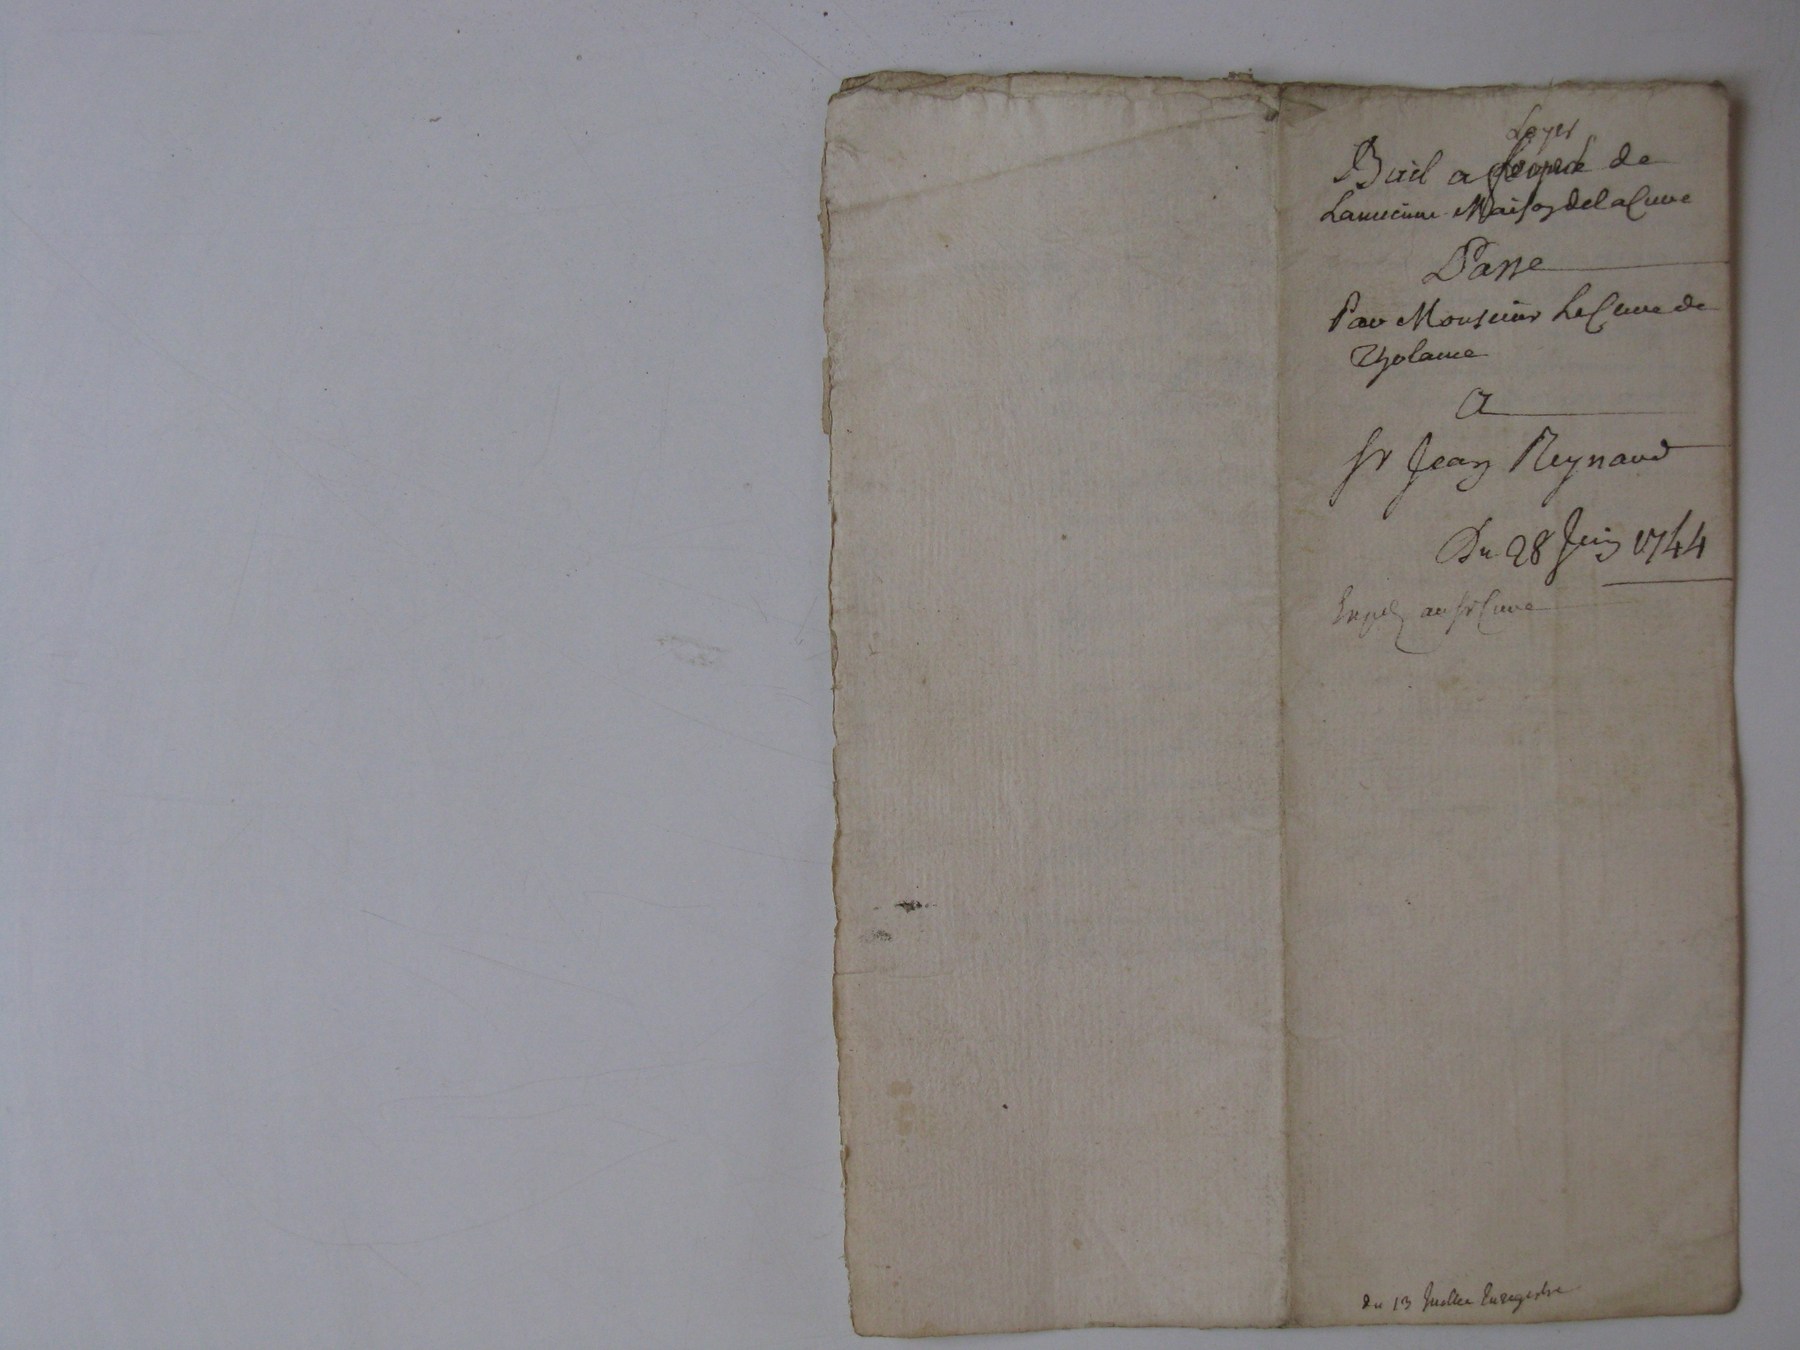 Loyer
Bail a de
Lancienne Maison dela Cure
Passe
Par Monsieur Le Cure de
A
Sr Jean Reynaud
Du 28 Juin 1744
au sr Cure
du 13 Juillet Enregistre